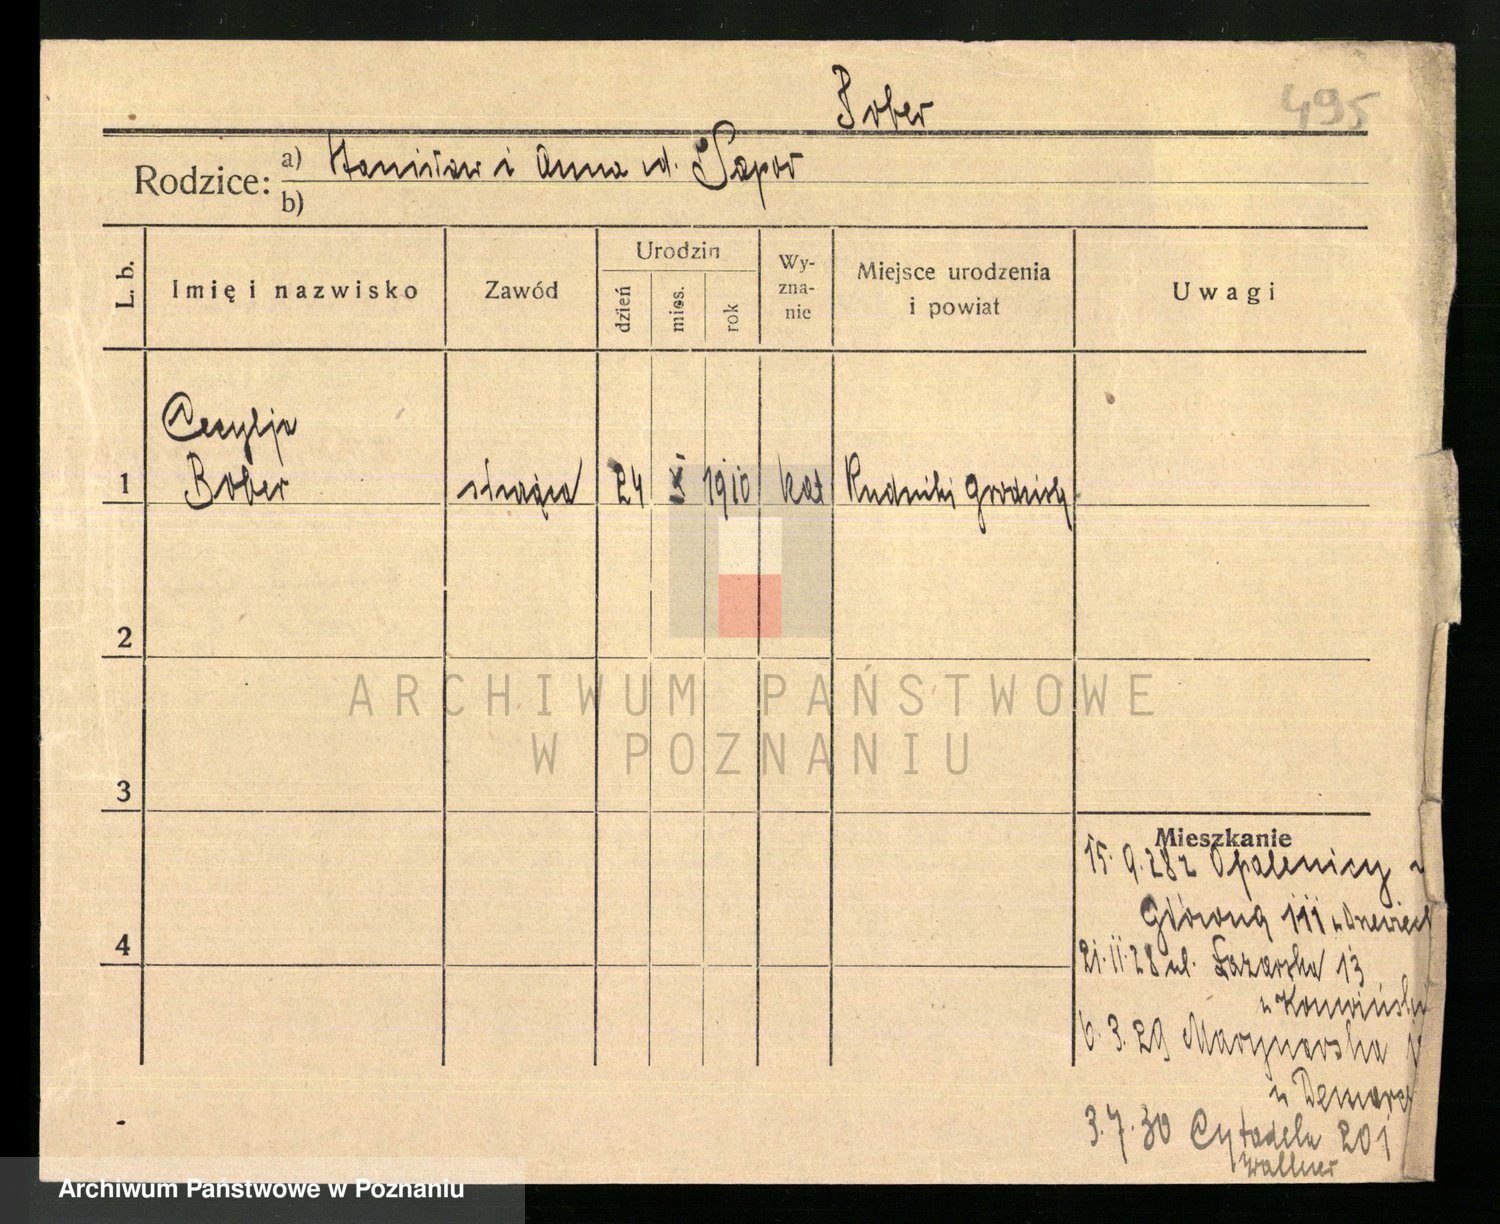 Bober
495
Rodzice: a) Stanisław i Anna d. Sapor
b)
L. b.
Imię i nazwisko
Zawód
Urodzin
dzień
mies.
rok
Wy-
zna-
nie
Miejsce urodzenia
i powiat
Uwagi
Cecylja
1 Bober służąca 24 X 1910 kat Rudniki Grodzisk
2
3
4
Mieszkanie
15.9.28 z Opalenicy
Główna 111 u
21.11.28 ul. Łazarska 13
u Konwiński
6.3.29 Marynarska
u
3.7.30 Cytadela 201
Wallner
ARCHIWUM PAŃSTWOWE
W POZNANIU
Archiwum Państwowe w Poznaniu